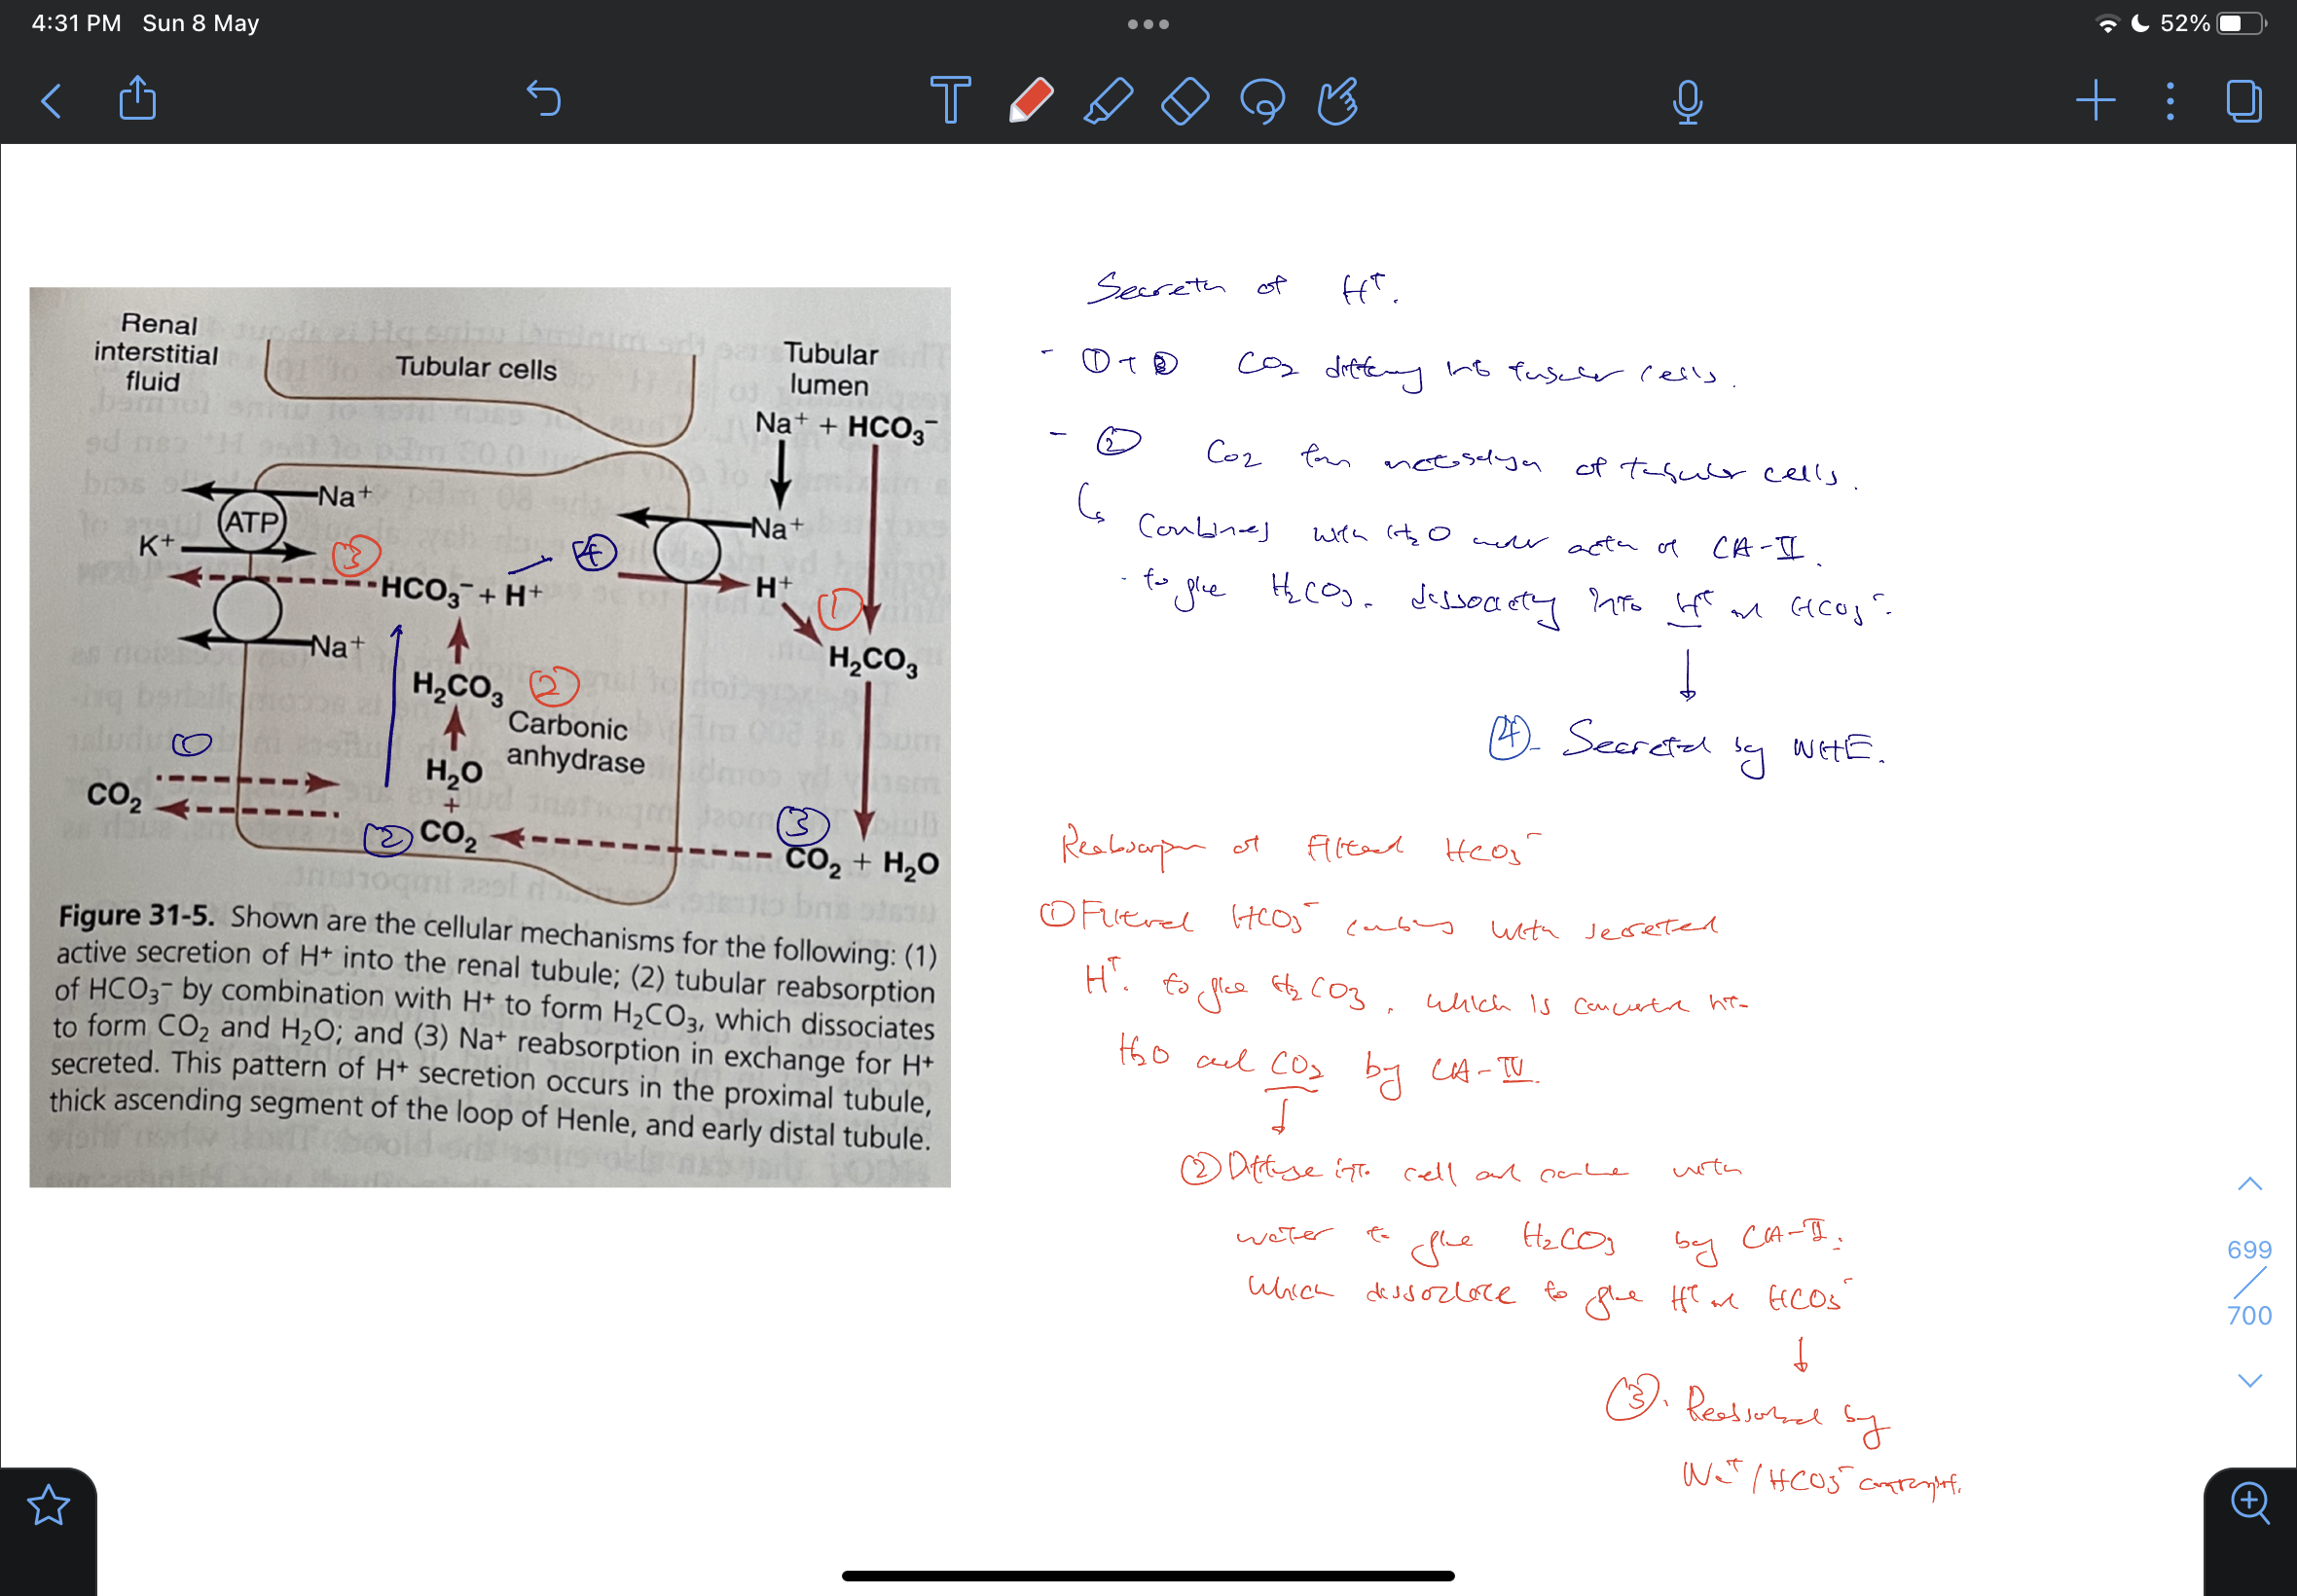 4:31 PM Sun 8 May
52%
Renal
interstitial
fluid
Tubular cells
Tubular
lumen
Na+ + HCO3−
Na+
ATP
K+
3
HCO3− + H+
4
Na+
H+
1
Na+
H2CO3
H2CO3
2
Carbonic
anhydrase
1
H2O
+
CO2
2
CO2
3
CO2 + H2O
Figure 31-5. Shown are the cellular mechanisms for the following: (1)
active secretion of H+ into the renal tubule; (2) tubular reabsorption
of HCO3− by combination with H+ to form H2CO3, which dissociates
to form CO2 and H2O; and (3) Na+ reabsorption in exchange for H+
secreted. This pattern of H+ secretion occurs in the proximal tubule,
thick ascending segment of the loop of Henle, and early distal tubule.
of H+.
- ① + ③ CO2 into tubular cells.
- ② CO2 of tubular cells.
Combines with H2O under of CA-II.
to give H2CO3. into H+ HCO3−.
④- Secreted by NHE.
of Filtered HCO3−
① Filtered HCO3− with secreted
H+. to give H2CO3, which is
H2O and CO2 by CA-IV.
② Diffuse into cell and with
water to give H2CO3 by CA-II.
which to give H+ HCO3−
③. by
Na+/HCO3−
699
700